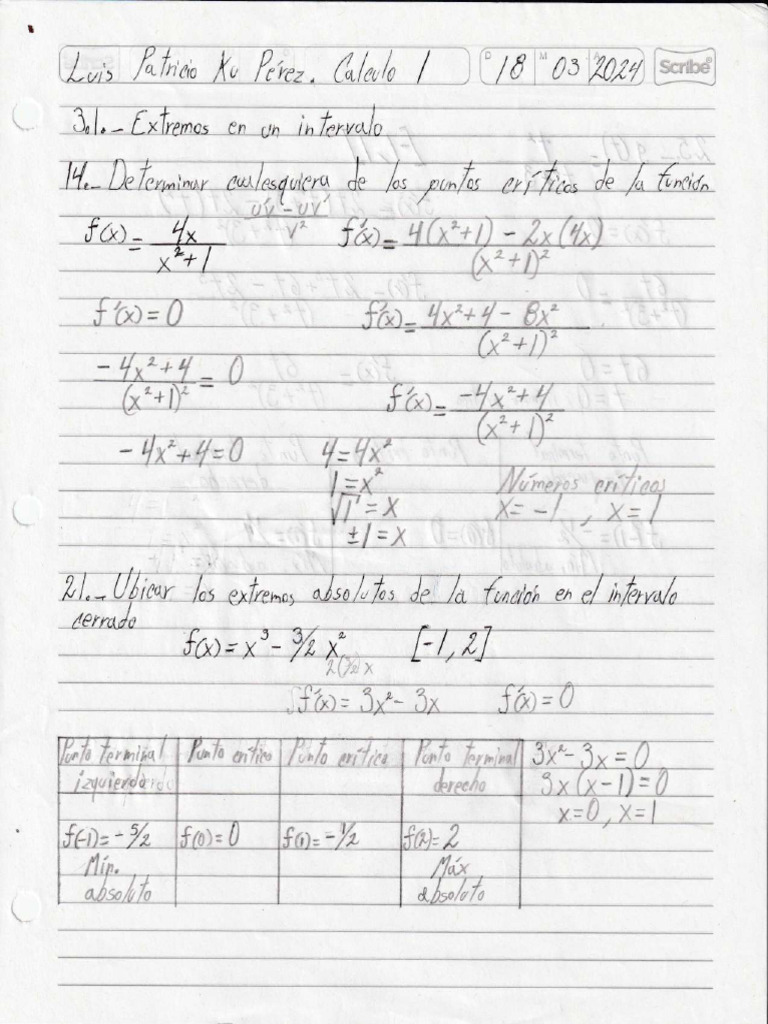 Luis Patricio Ku Pérez. Calculo 1
D 18 M 03 A 2024 Scribe®
3.1.- Extremos en un intervalo
14.- Determinar cualesquiera de los puntos críticos de la función
u'v - uv' / v²
f(x) = 4x / x² + 1    f'(x) = 4(x² + 1) - 2x(4x) / (x² + 1)²
f'(x) = 0    f'(x) = 4x² + 4 - 8x² / (x² + 1)²
-4x² + 4 / (x² + 1)² = 0    f'(x) = -4x² + 4 / (x² + 1)²
-4x² + 4 = 0    4 = 4x²
1 = x²    Números críticos
√1 = x    x = -1 , x = 1
±1 = x
21.- Ubicar los extremos absolutos de la función en el intervalo
cerrado
f(x) = x³ - 3/2 x²    [-1, 2]
2(3/2)x
f'(x) = 3x² - 3x    f'(x) = 0
Punto terminal izquierdo    Punto crítico    Punto crítico    Punto terminal derecho
f(-1) = -5/2    f(0) = 0    f(1) = -1/2    f(2) = 2
Mín. absoluto    Máx absoluto
3x² - 3x = 0
3x(x - 1) = 0
x = 0, x = 1